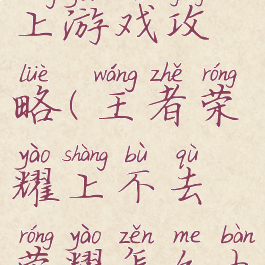 上游戏攻
lüè wáng zhě róng
略(王者荣
yào shàng bù qù
耀上不去
róng yào zěn me bàn
荣耀怎么办